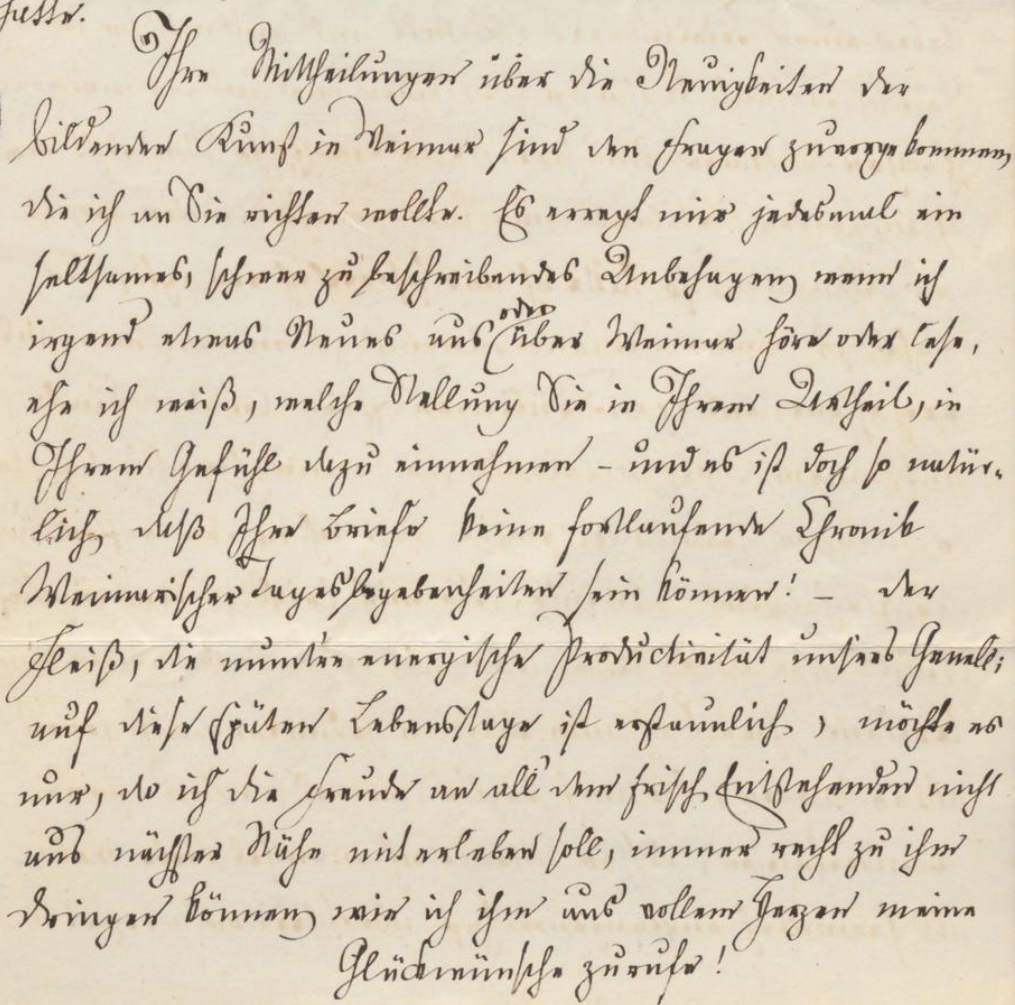 hätte.
Ihre Mittheilungen über die Neuigkeiten der
bildenden Kunst in Weimar sind den Fragen zuvorgekommen,
die ich an Sie richten wollte. Es erregt mir jedesmal ein
seltsames, schwer zu beschreibendes Unbehagen, wenn ich
irgend etwas Neues aus oder über Weimar höre oder lese,
ehe ich weiß, welche Stellung Sie in Ihrem Urtheil, in
Ihrem Gefühl dazu einnehmen – und es ist doch so natür-
lich, daß Ihre Briefe keine fortlaufende Chronik
Weimarischer Tagesbegebenheiten sein können! – Der
Fleiß, die muntre energische Productivität unsres Genelli
auf diese späten Lebenstage ist erstaunlich; möchte es
nur, da ich die Freude an all' dem frisch Entstehenden nicht
aus nächster Nähe miterleben soll, immer recht zu ihm
dringen können, wie ich ihm aus vollem Herzen meine
Glückwünsche zurufe!